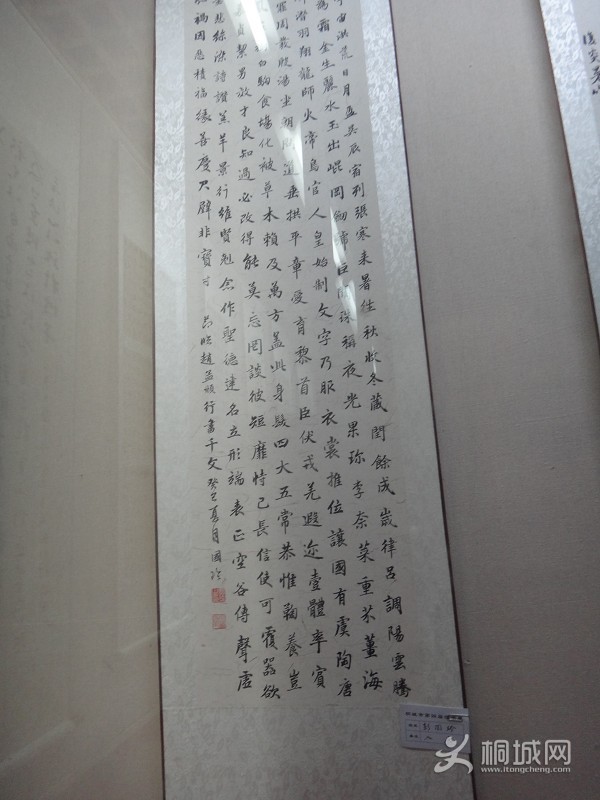 宙洪荒日月盈昃辰宿列張寒来暑往秋收冬藏閏餘成歲律吕調陽雲騰
為霜金生麗水玉出崐岡劒號巨闕珠稱夜光果珍李柰菜重芥薑海
潛羽翔龍師火帝鳥官人皇始制文字乃服衣裳推位讓國有虞陶唐
罪周發殷湯坐朝問道垂拱平章愛育黎首臣伏戎羌遐迩壹體率賓
白駒食場化被草木賴及萬方盖此身髮四大五常恭惟鞠養豈
貞絜男效才良知過必改得能莫忘罔談彼短靡恃己長信使可覆器欲
悲絲染詩讚羔羊景行維賢尅念作聖德建名立形端表正空谷傳聲虚
禍因惡積福緣善慶尺璧非寶寸
臨趙孟頫行書千文癸巳夏月國珍
桐城网
www.itongcheng.com